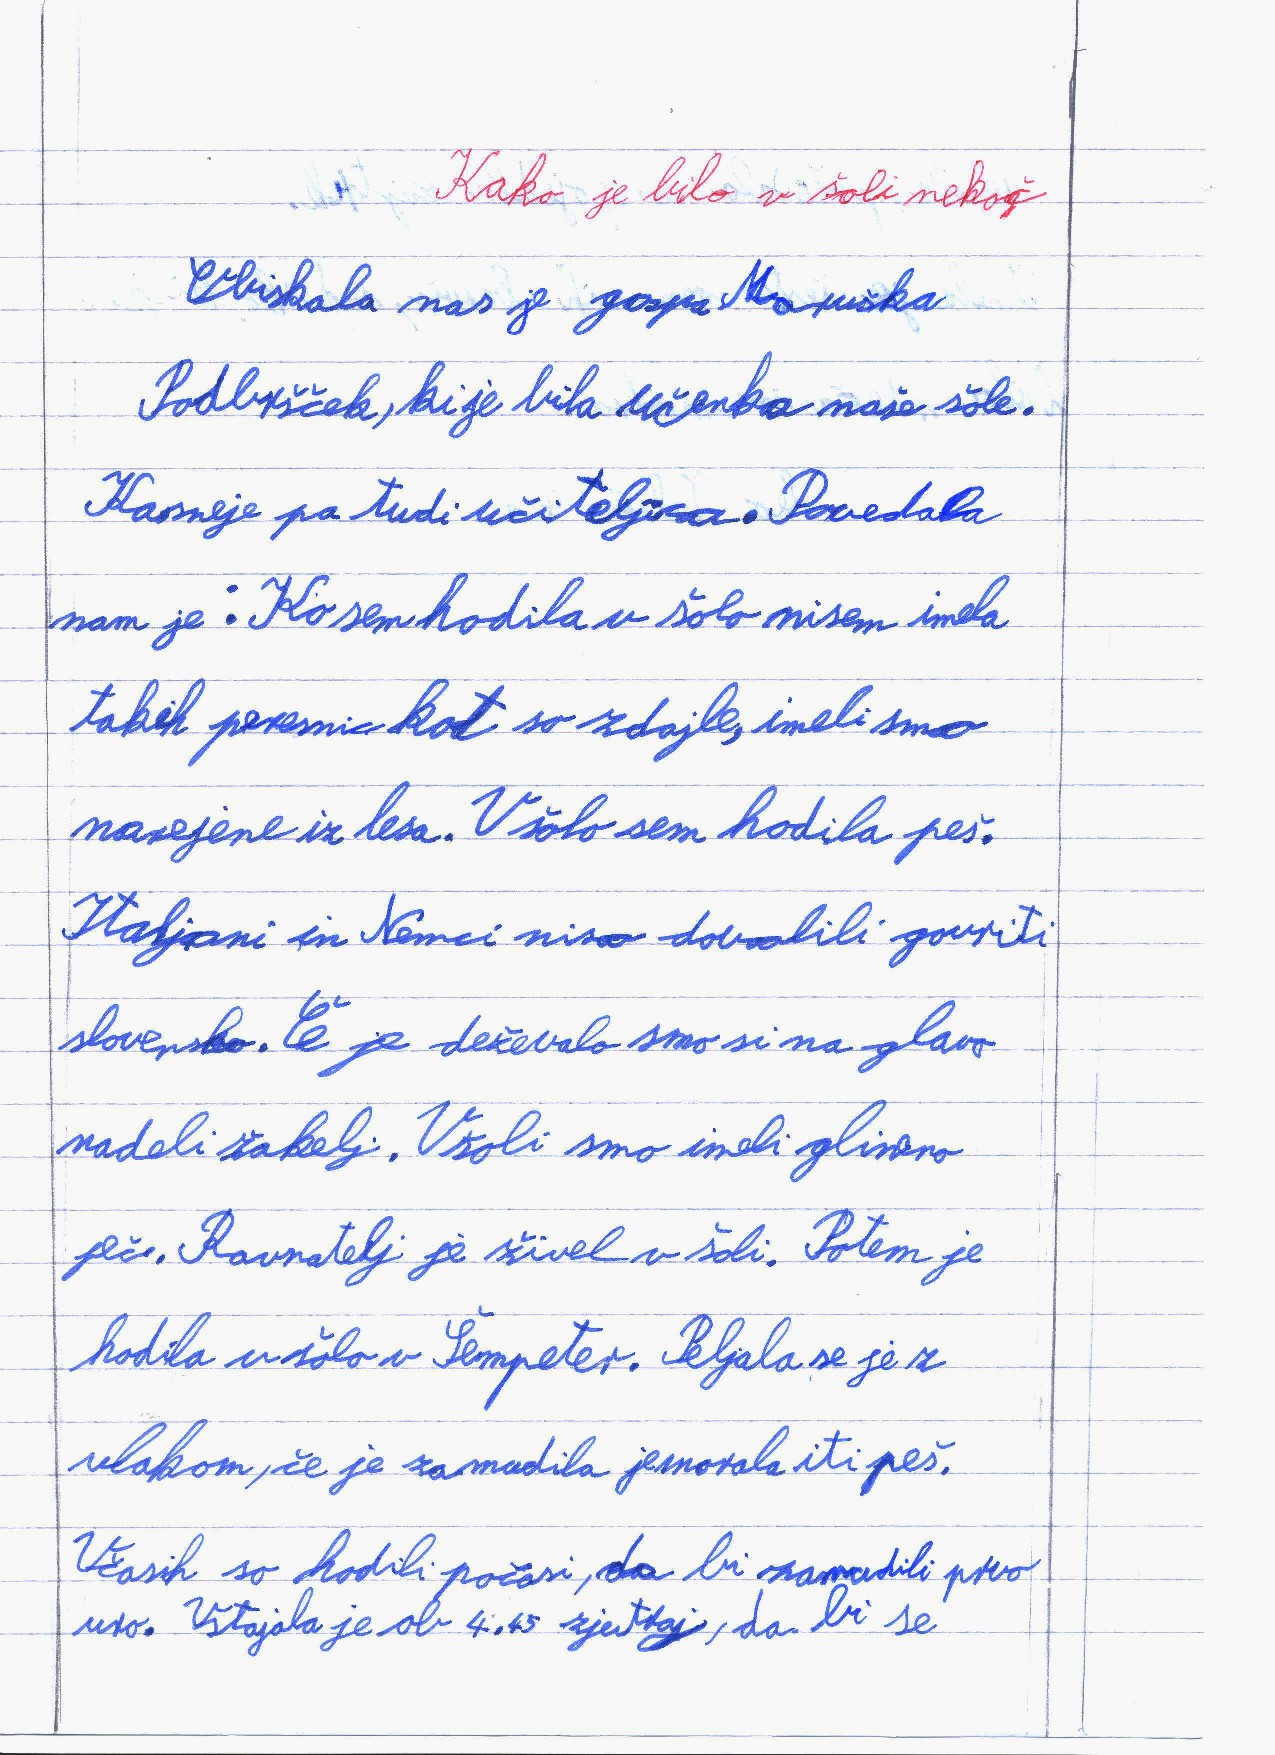 Kako je bilo v šoli nekoč
Obiskala nas je gospa Maruška
Podbršček, ki je bila učenka naše šole.
Kasneje pa tudi učiteljica. Povedala
nam je: Ko sem hodila v šolo nisem imela
takih peresnic kot so zdajle, imeli smo
narejene iz lesa. V šolo sem hodila peš.
Italjani in Nemci niso dovolili govriti
slovensko. Če je deževalo smo si na glavo
nadeli žakelj. V šoli smo imeli glineno
peč. Ravnatelj je živel v šoli. Potem je
hodila v šolo v Šempeter. Peljala se je z
vlakom, če je zamudila je morala iti peš.
Včasih so hodili počasi, da bi zamudili prvo
uro. Vstajala je ob 4.45 zjutraj, da bi se